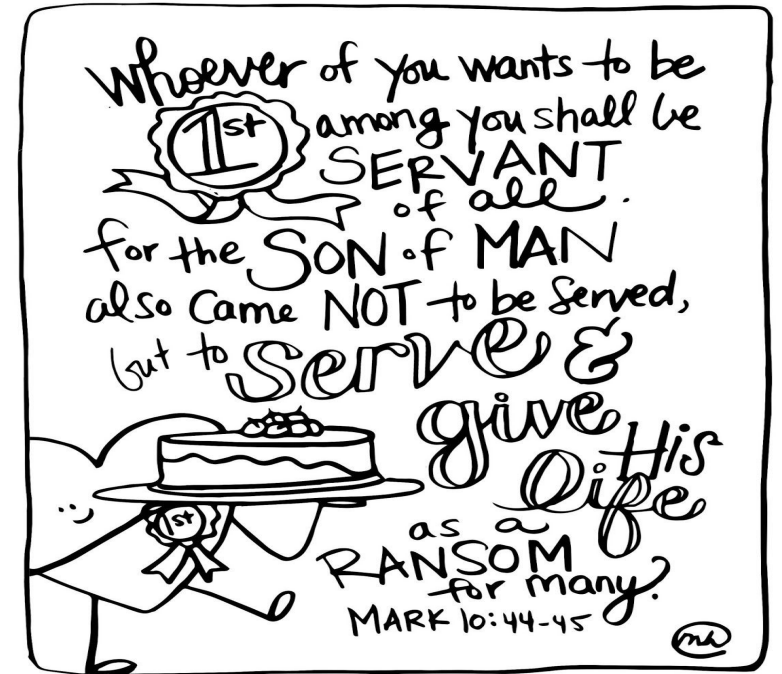 Whoever of you wants to be
1st among you shall be
SERVANT
of all.
for the SON of MAN
also came NOT to be served,
but to serve &
give His
life
as a
RANSOM
for many?
MARK 10:44-45
1st
mh